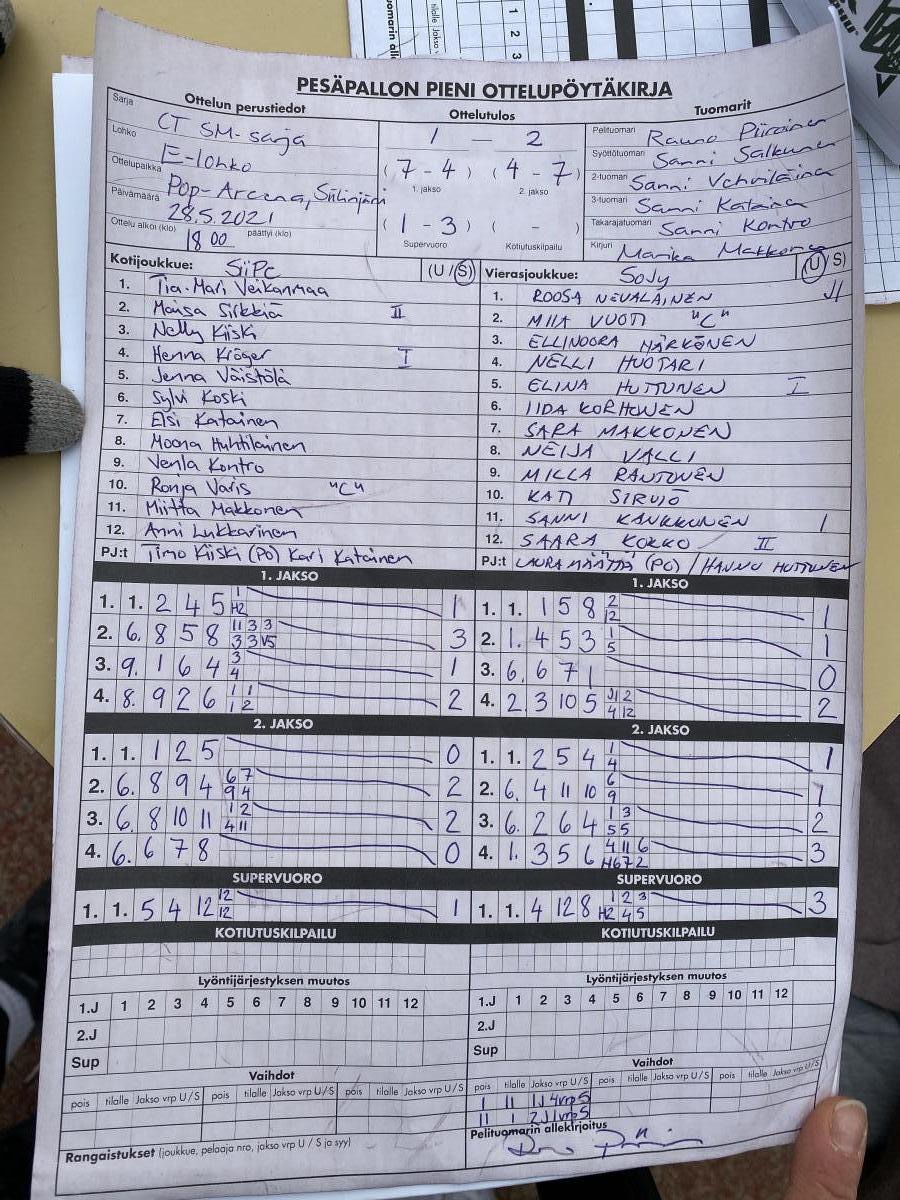 PESÄPALLON PIENI OTTELUPÖYTÄKIRJA
Ottelun perustiedot Ottelutulos Tuomarit
Sarja CT SM-sarja
Lohko E-lohko
Ottelupaikka Pop-Areena, Siilinjärvi
Päivämäärä 28.5.2021
Ottelu alkoi (klo) 18 00 päättyi (klo)
1 — 2
(7 - 4) (4 - 7)
1. jakso 2. jakso
(1 - 3) ( - )
Supervuoro Kotiutuskilpailu
Pelituomari Rauno Piirainen
Syöttötuomari Sanni Salkunen
2-tuomari Sanni Vehviläinen
3-tuomari Sanni Kataina
Takarajatuomari Sanni Kontro
Kirjuri Marika Makkonen
Kotijoukkue: SiPe (U / S)
1. Tia-Mari Veikanmaa
2. Maisa Sirkkiä II
3. Nelly Kiiski
4. Henna Kröger I
5. Jenna Väistölä
6. Sylvi Koski
7. Elsi Katainen
8. Moona Huhtilainen
9. Venla Kontro
10. Ronja Varis "C"
11. Miitta Makkonen
12. Anni Lukkarinen
PJ:t Timo Kiiski (PO) Kari Katainen
Vierasjoukkue: SoJy (U / S)
1. ROOSA NEVALAINEN J1
2. MIIA VUOTI "C"
3. ELLINOORA HÄRKÖNEN
4. NELLI HUOTARI
5. ELINA HUTTUNEN I
6. IIDA KORHONEN
7. SARA MAKKONEN
8. NEIJA VALLI
9. MILLA RANTONEN
10. KATI SIRVIÖ
11. SANNI KANKKUNEN 1
12. SAARA KOKKO II
PJ:t LAURA MÄÄTTÄ (PO) / HANNU HUTTUNEN
1. JAKSO
1. 1. 2 4 5 1 H2 1
2. 6. 8 5 8 11 3 3 3 3 V5 3
3. 9. 1 6 4 3 4 1
4. 8. 9 2 6 1 1 1 2 2
1. JAKSO
1. 1. 1 5 8 2 12 1
2. 1. 4 5 3 1 5 1
3. 6. 6 7 1 0
4. 2. 3 10 5 J1 2 4 12 2
2. JAKSO
1. 1. 1 2 5 0
2. 6. 8 9 4 6 7 9 4 2
3. 6. 8 10 11 1 2 4 11 2
4. 6. 6 7 8 0
2. JAKSO
1. 1. 2 5 4 1 4 1
2. 6. 4 11 10 6 9 1
3. 6. 2 6 4 1 3 5 5 2
4. 1. 3 5 6 4 11 6 H6 7 2 3
SUPERVUORO
1. 1. 5 4 12 12 12 1
SUPERVUORO
1. 1. 4 12 8 1 2 3 H2 4 5 3
KOTIUTUSKILPAILU
KOTIUTUSKILPAILU
Lyöntijärjestyksen muutos
1.J 1 2 3 4 5 6 7 8 9 10 11 12
2.J
Sup
Lyöntijärjestyksen muutos
1.J 1 2 3 4 5 6 7 8 9 10 11 12
2.J
Sup
Vaihdot
pois tilalle Jakso vrp U / S pois tilalle Jakso vrp U / S pois tilalle Jakso vrp U / S
Vaihdot
pois tilalle Jakso vrp U / S pois tilalle Jakso vrp U / S pois tilalle Jakso vrp U / S
1 11 1J 4vrp S
11 1 2J 1vrp S
Rangaistukset (joukkue, pelaaja nro, jakso vrp U / S ja syy)
Pelituomarin allekirjoitus